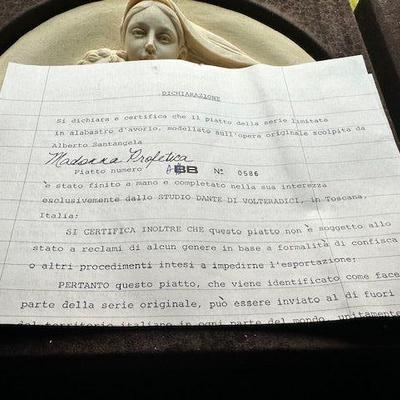 DICHIARAZIONE
Si dichiara e certifica che il piatto della serie limitata
in alabastro d'avorio, modellato sull'opera originale scolpita da
Alberto Santangela
Madonna Profetica
Piatto numero ABB Nº 0586
è stato finito a mano e completato nella sua interezza
esclusivamente dallo STUDIO DANTE DI VOLTERADICI, in Toscana,
Italia;
SI CERTIFICA INOLTRE CHE questo piatto non è soggetto allo
stato a reclami di alcun genere in base a formalità di confisca
o altri procedimenti intesi a impedirne l'esportazione;
PERTANTO questo piatto, che viene identificato come face
parte della serie originale, può essere inviato al di fuori
del territorio italiano in ogni parte del mondo, unitamente